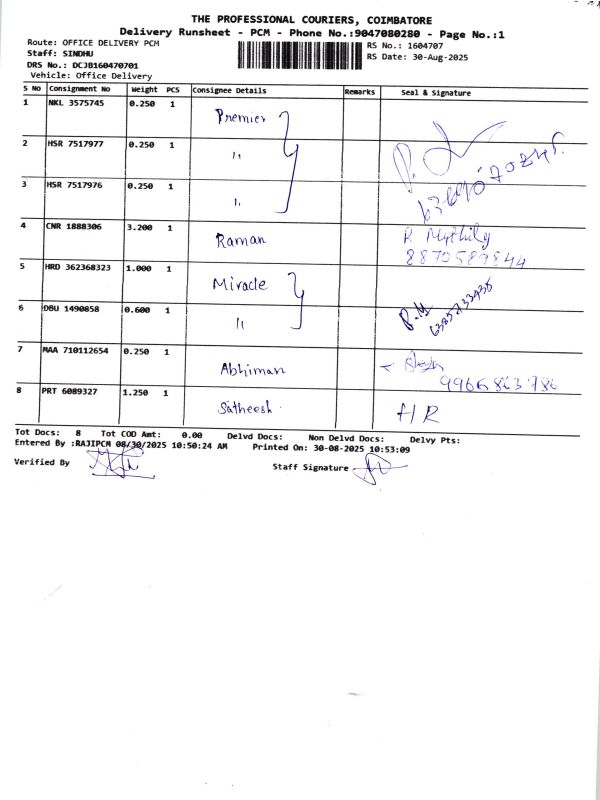 THE PROFESSIONAL COURIERS, COIMBATORE
Delivery Runsheet - PCM - Phone No.:9047080280 - Page No.:1
Route: OFFICE DELIVERY PCM
RS No.: 1604707
Staff: SINDHU
RS Date: 30-Aug-2025
DRS No.: DCJB160470701
Vehicle: Office Delivery
S No Consignment No Weight PCS Consignee Details Remarks Seal & Signature
1 NKL 3575745 0.250 1 Premier
2 HSR 7517977 0.250 1 "
3 HSR 7517976 0.250 1 "
4 CNR 1888306 3.200 1 Raman R Mythily
8870589844
5 HRD 362368323 1.000 1 Miracle
6 DBU 1490858 0.600 1 "
7 MAA 710112654 0.250 1 Abhiman
8 PRT 6089327 1.250 1 Satheesh HR
Tot Docs: 8 Tot COD Amt: 0.00 Delvd Docs: Non Delvd Docs: Delvy Pts:
Entered By :RAJIPCM 08/30/2025 10:50:24 AM Printed On: 30-08-2025 10:53:09
Verified By Staff Signature